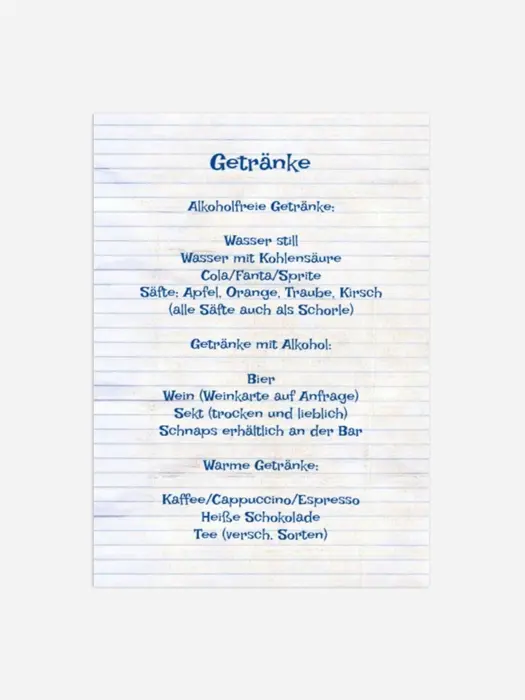 Getränke
Alkoholfreie Getränke:
Wasser still
Wasser mit Kohlensäure
Cola/Fanta/Sprite
Säfte: Apfel, Orange, Traube, Kirsch
(alle Säfte auch als Schorle)
Getränke mit Alkohol:
Bier
Wein (Weinkarte auf Anfrage)
Sekt (trocken und lieblich)
Schnaps erhältlich an der Bar
Warme Getränke:
Kaffee/Cappuccino/Espresso
Heiße Schokolade
Tee (versch. Sorten)